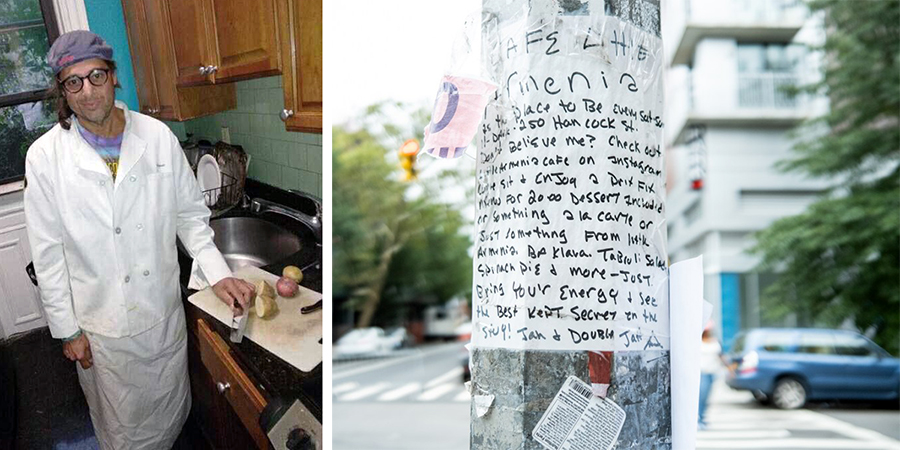 CAFE LITTLE
Armenia
is the Place to Be Every Sat-Sun
250 Hancock St.
Don't Believe me? Check out
Little Armenia cafe on Instagram
sit & Enjoy a Prix Fix
for 20.00 Dessert Included
or Something a la carte or
Just Something From Little
Armenia. Baklava. Tabouli Salad
Spinach Pie & more - Just
Bring Your Energy & See
the Best Kept Secret in the
Stuy! Jan & Double Jan